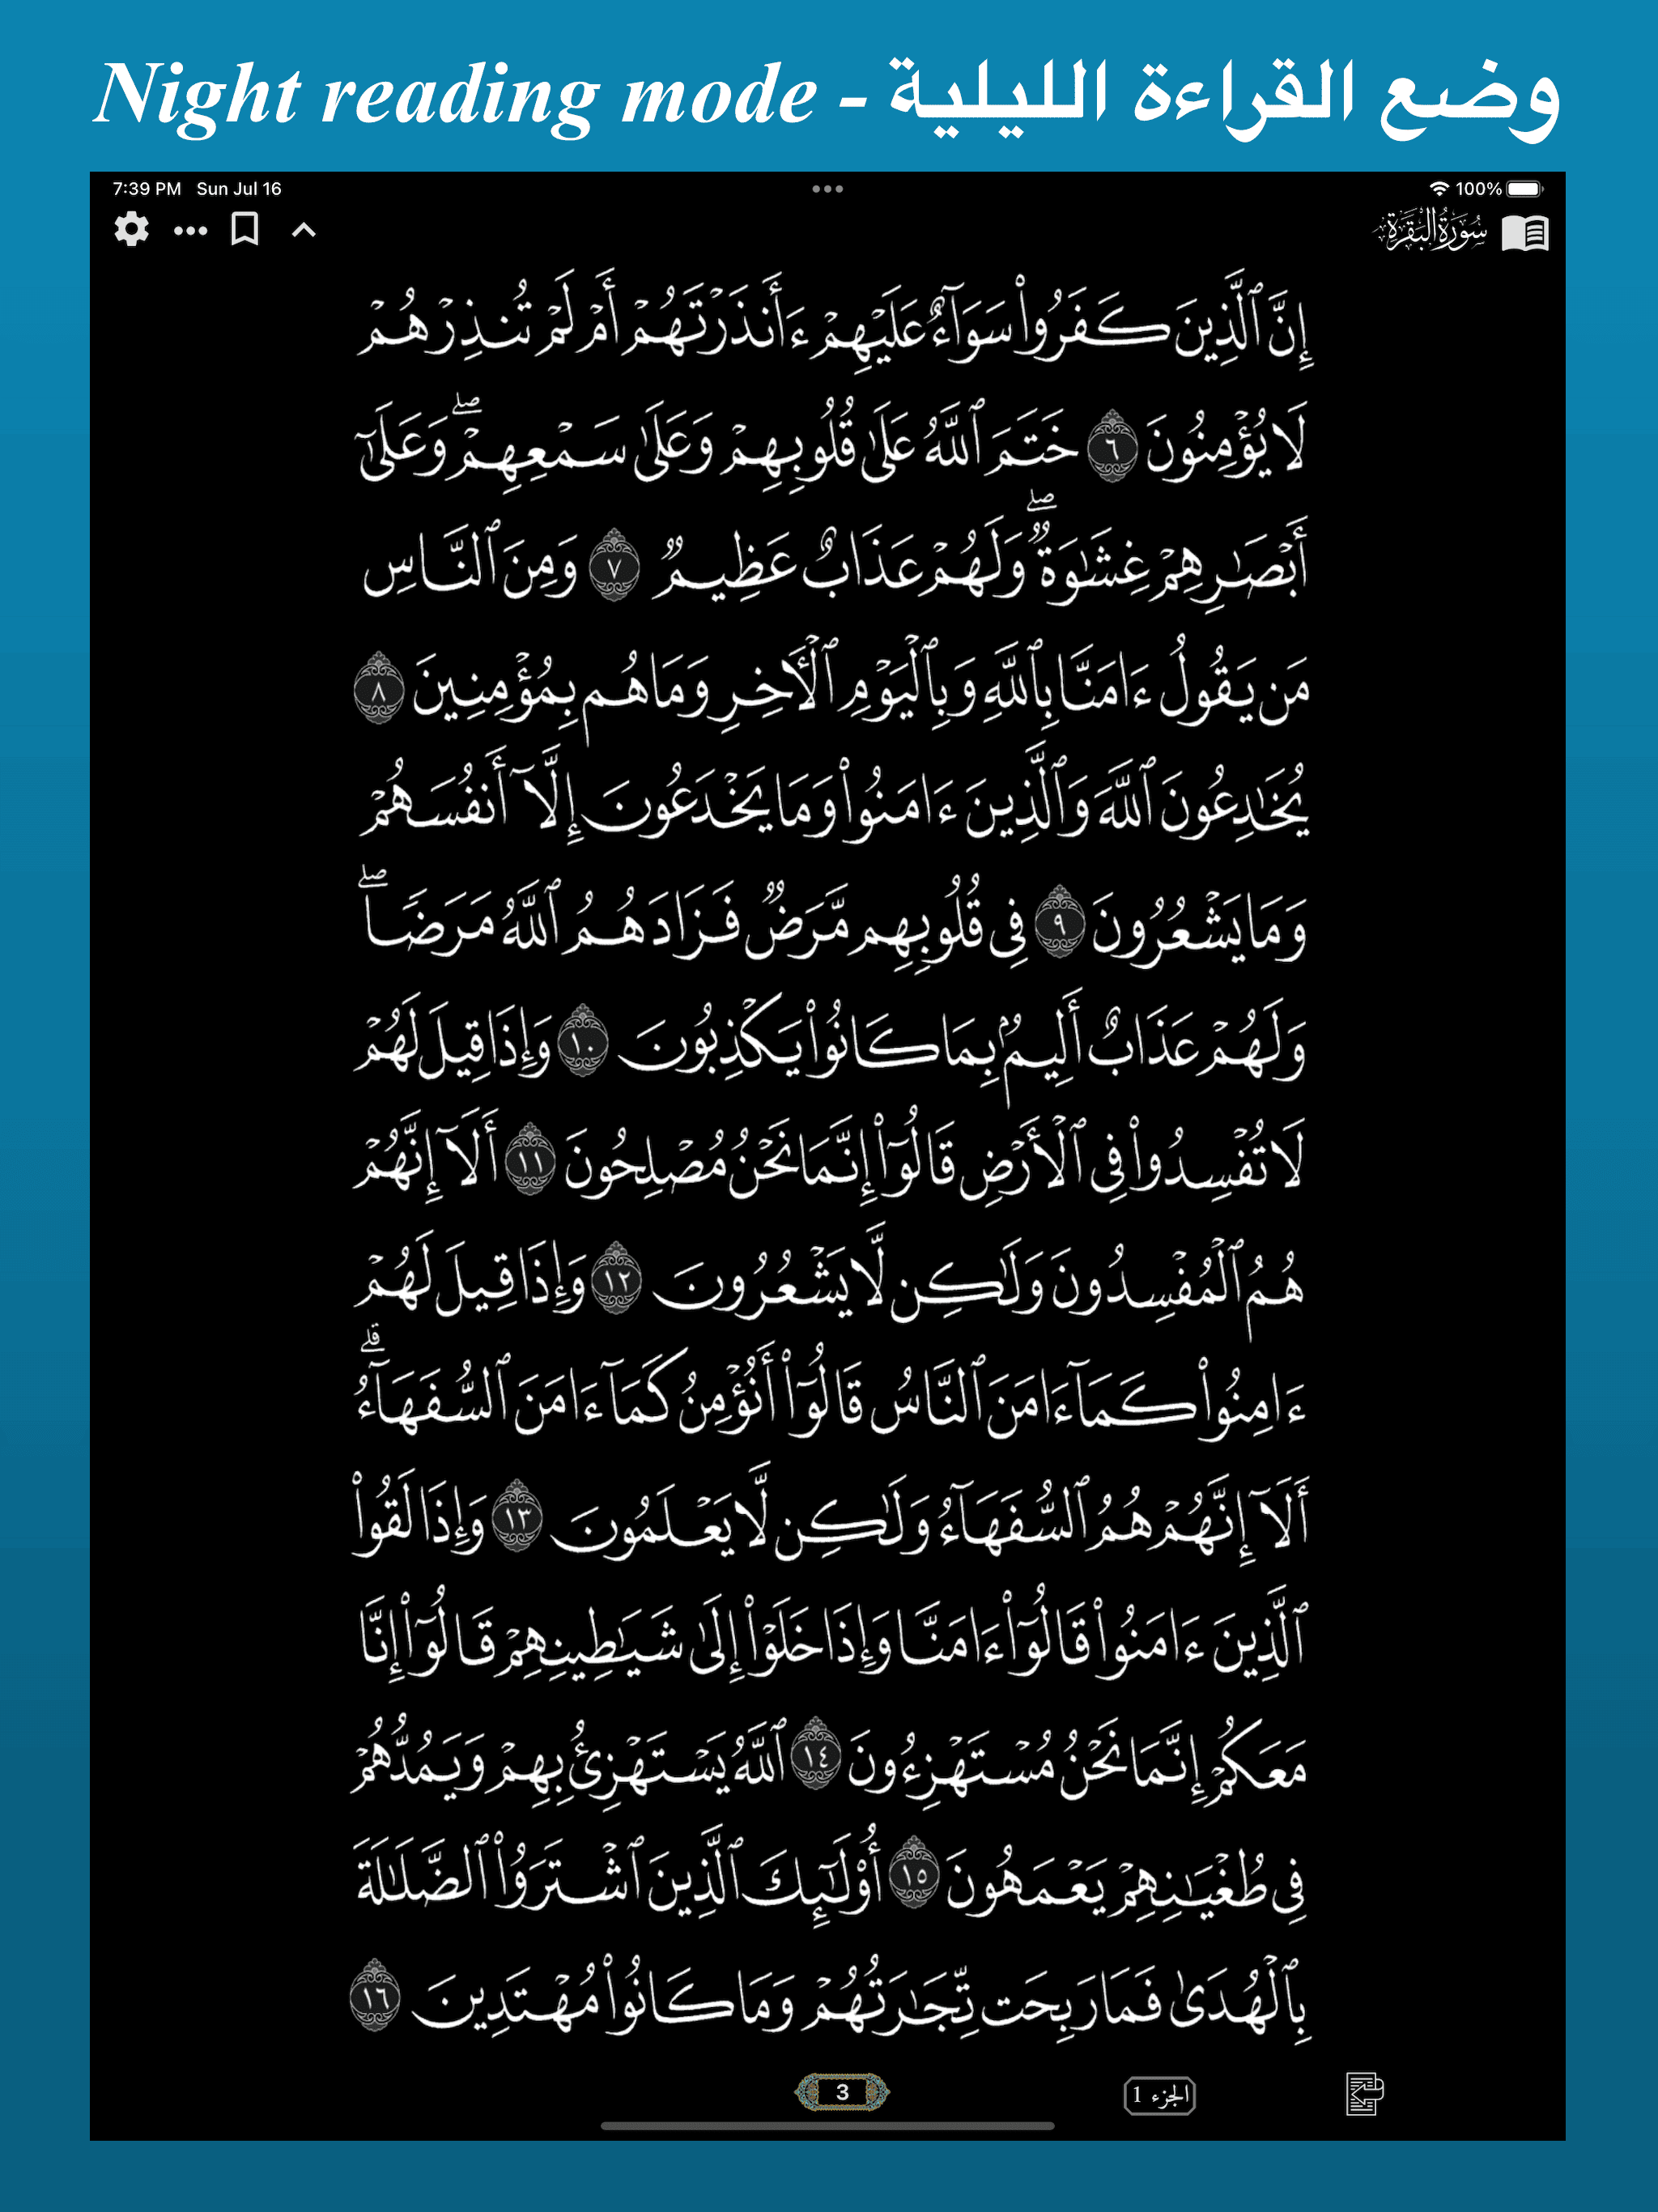 Night reading mode - وضع القراءة الليلية
7:39 PM Sun Jul 16
100%
سُورَةُ البَقَرَةِ
إِنَّ ٱلَّذِينَ كَفَرُوا۟ سَوَآءٌ عَلَيْهِمْ ءَأَنذَرْتَهُمْ أَمْ لَمْ تُنذِرْهُمْ
لَا يُؤْمِنُونَ ٦ خَتَمَ ٱللَّهُ عَلَىٰ قُلُوبِهِمْ وَعَلَىٰ سَمْعِهِمْ ۖ وَعَلَىٰٓ
أَبْصَـٰرِهِمْ غِشَـٰوَةٌ ۖ وَلَهُمْ عَذَابٌ عَظِيمٌ ٧ وَمِنَ ٱلنَّاسِ
مَن يَقُولُ ءَامَنَّا بِٱللَّهِ وَبِٱلْيَوْمِ ٱلْـَٔاخِرِ وَمَا هُم بِمُؤْمِنِينَ ٨
يُخَـٰدِعُونَ ٱللَّهَ وَٱلَّذِينَ ءَامَنُوا۟ وَمَا يَخْدَعُونَ إِلَّآ أَنفُسَهُمْ
وَمَا يَشْعُرُونَ ٩ فِى قُلُوبِهِم مَّرَضٌ فَزَادَهُمُ ٱللَّهُ مَرَضًا ۖ
وَلَهُمْ عَذَابٌ أَلِيمٌۢ بِمَا كَانُوا۟ يَكْذِبُونَ ١٠ وَإِذَا قِيلَ لَهُمْ
لَا تُفْسِدُوا۟ فِى ٱلْأَرْضِ قَالُوٓا۟ إِنَّمَا نَحْنُ مُصْلِحُونَ ١١ أَلَآ إِنَّهُمْ
هُمُ ٱلْمُفْسِدُونَ وَلَـٰكِن لَّا يَشْعُرُونَ ١٢ وَإِذَا قِيلَ لَهُمْ
ءَامِنُوا۟ كَمَآ ءَامَنَ ٱلنَّاسُ قَالُوٓا۟ أَنُؤْمِنُ كَمَآ ءَامَنَ ٱلسُّفَهَآءُ ۗ
أَلَآ إِنَّهُمْ هُمُ ٱلسُّفَهَآءُ وَلَـٰكِن لَّا يَعْلَمُونَ ١٣ وَإِذَا لَقُوا۟
ٱلَّذِينَ ءَامَنُوا۟ قَالُوٓا۟ ءَامَنَّا وَإِذَا خَلَوْا۟ إِلَىٰ شَيَـٰطِينِهِمْ قَالُوٓا۟ إِنَّا
مَعَكُمْ إِنَّمَا نَحْنُ مُسْتَهْزِءُونَ ١٤ ٱللَّهُ يَسْتَهْزِئُ بِهِمْ وَيَمُدُّهُمْ
فِى طُغْيَـٰنِهِمْ يَعْمَهُونَ ١٥ أُو۟لَـٰٓئِكَ ٱلَّذِينَ ٱشْتَرَوُا۟ ٱلضَّلَـٰلَةَ
بِٱلْهُدَىٰ فَمَا رَبِحَت تِّجَـٰرَتُهُمْ وَمَا كَانُوا۟ مُهْتَدِينَ ١٦
الجزء 1
3